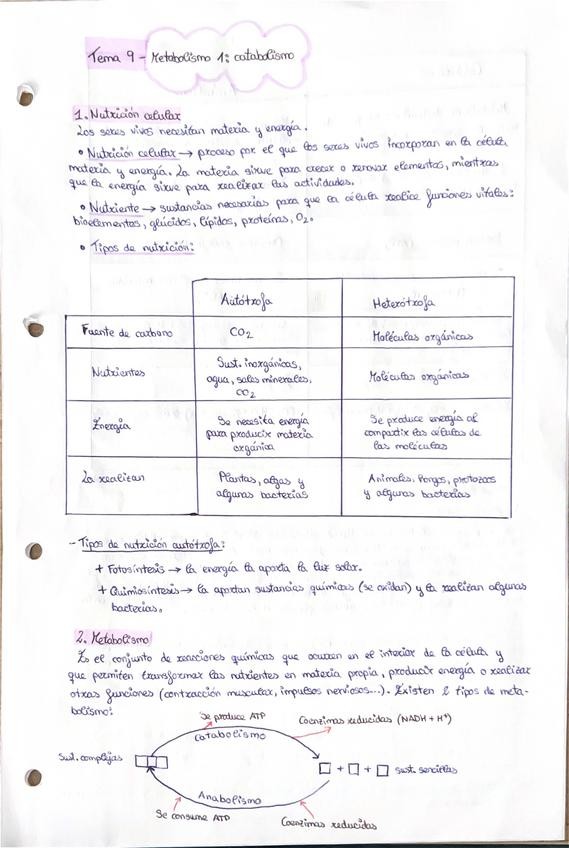 Tema 9 - Metabolismo 1: catabolismo
1. Nutrición celular
Los seres vivos necesitan materia y energía.
• Nutrición celular → proceso por el que los seres vivos incorporan en la célula
materia y energía. La materia sirve para crecer o renovar elementos, mientras
que la energía sirve para realizar las actividades.
• Nutriente → sustancias necesarias para que la célula realice funciones vitales:
bioelementos, glúcidos, lípidos, proteínas, O₂.
• Tipos de nutrición:
Autótrofa Heterótrofa
Fuente de carbono CO₂ Moléculas orgánicas
Nutrientes Sust. inorgánicas, Moléculas orgánicas
agua, sales minerales,
CO₂
Energía Se necesita energía Se produce energía al
para producir materia compartir las células de
orgánica las moléculas
La realizan Plantas, algas y Animales, hongos, protozoos
algunas bacterias y algunas bacterias
- Tipos de nutrición autótrofa:
+ Fotosíntesis → la energía la aporta la luz solar.
+ Quimiosíntesis → la aportan sustancias químicas (se oxidan) y la realizan algunas
bacterias.
2. Metabolismo
Es el conjunto de reacciones químicas que ocurren en el interior de la célula y
que permiten transformar los nutrientes en materia propia, producir energía o realizar
otras funciones (contracción muscular, impulsos nerviosos...). Existen 2 tipos de meta-
bolismo:
Se produce ATP Coenzimas reducidas (NADH + H⁺)
Catabolismo
Sust. complejas + + sust. sencillas
Anabolismo
Se consume ATP Coenzimas reducidas